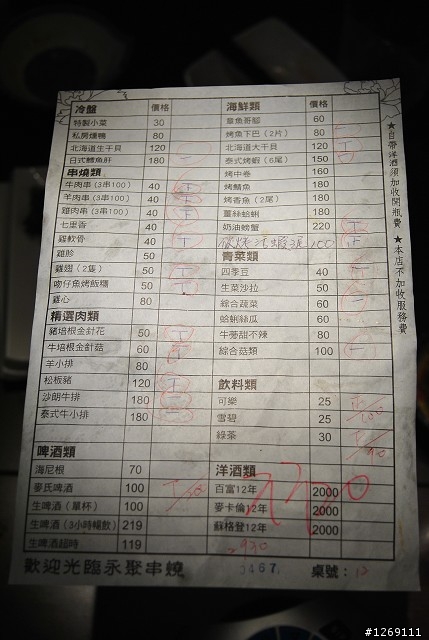 冷盤 價格
特製小菜 30
私房燻鴨 80
北海道生干貝 120
日式鱈魚肝 180
串燒類
牛肉串(3串100) 40
羊肉串(3串100) 40
雞肉串(3串100) 40
七里香 40
雞軟骨 40
雞胗 50
雞翅(2隻) 50
吻仔魚烤飯糰 50
雞心 80
精選肉類
豬培根金針花 50
牛培根金針菇 60
羊小排 80
松板豬 120
沙朗牛排 180
泰式牛小排 180
啤酒類
海尼根 70
麥氏啤酒 100
生啤酒(單杯) 100
生啤酒(3小時暢飲) 219
生啤酒超時 119
海鮮類 價格
章魚哥驅 60
烤魚下巴(2片) 80
北海道大干貝 120
泰式烤蝦(6尾) 150
烤中卷 160
烤鯖魚 180
烤香魚(2尾) 180
薑絲蛤蜊 180
奶油螃蟹 220
青菜類
四季豆 40
生菜沙拉 50
綜合蔬菜 60
蛤蜊絲瓜 60
牛蒡甜不辣 80
綜合菇類 100
飲料類
可樂 25
雪碧 25
綠茶 30
洋酒類
百富12年 2000
麥卡倫12年 2000
蘇格登12年 2000
★自帶洋酒須加收開瓶費 ★本店不加收服務費
歡迎光臨永聚串燒 3467 桌號：12
#1269111